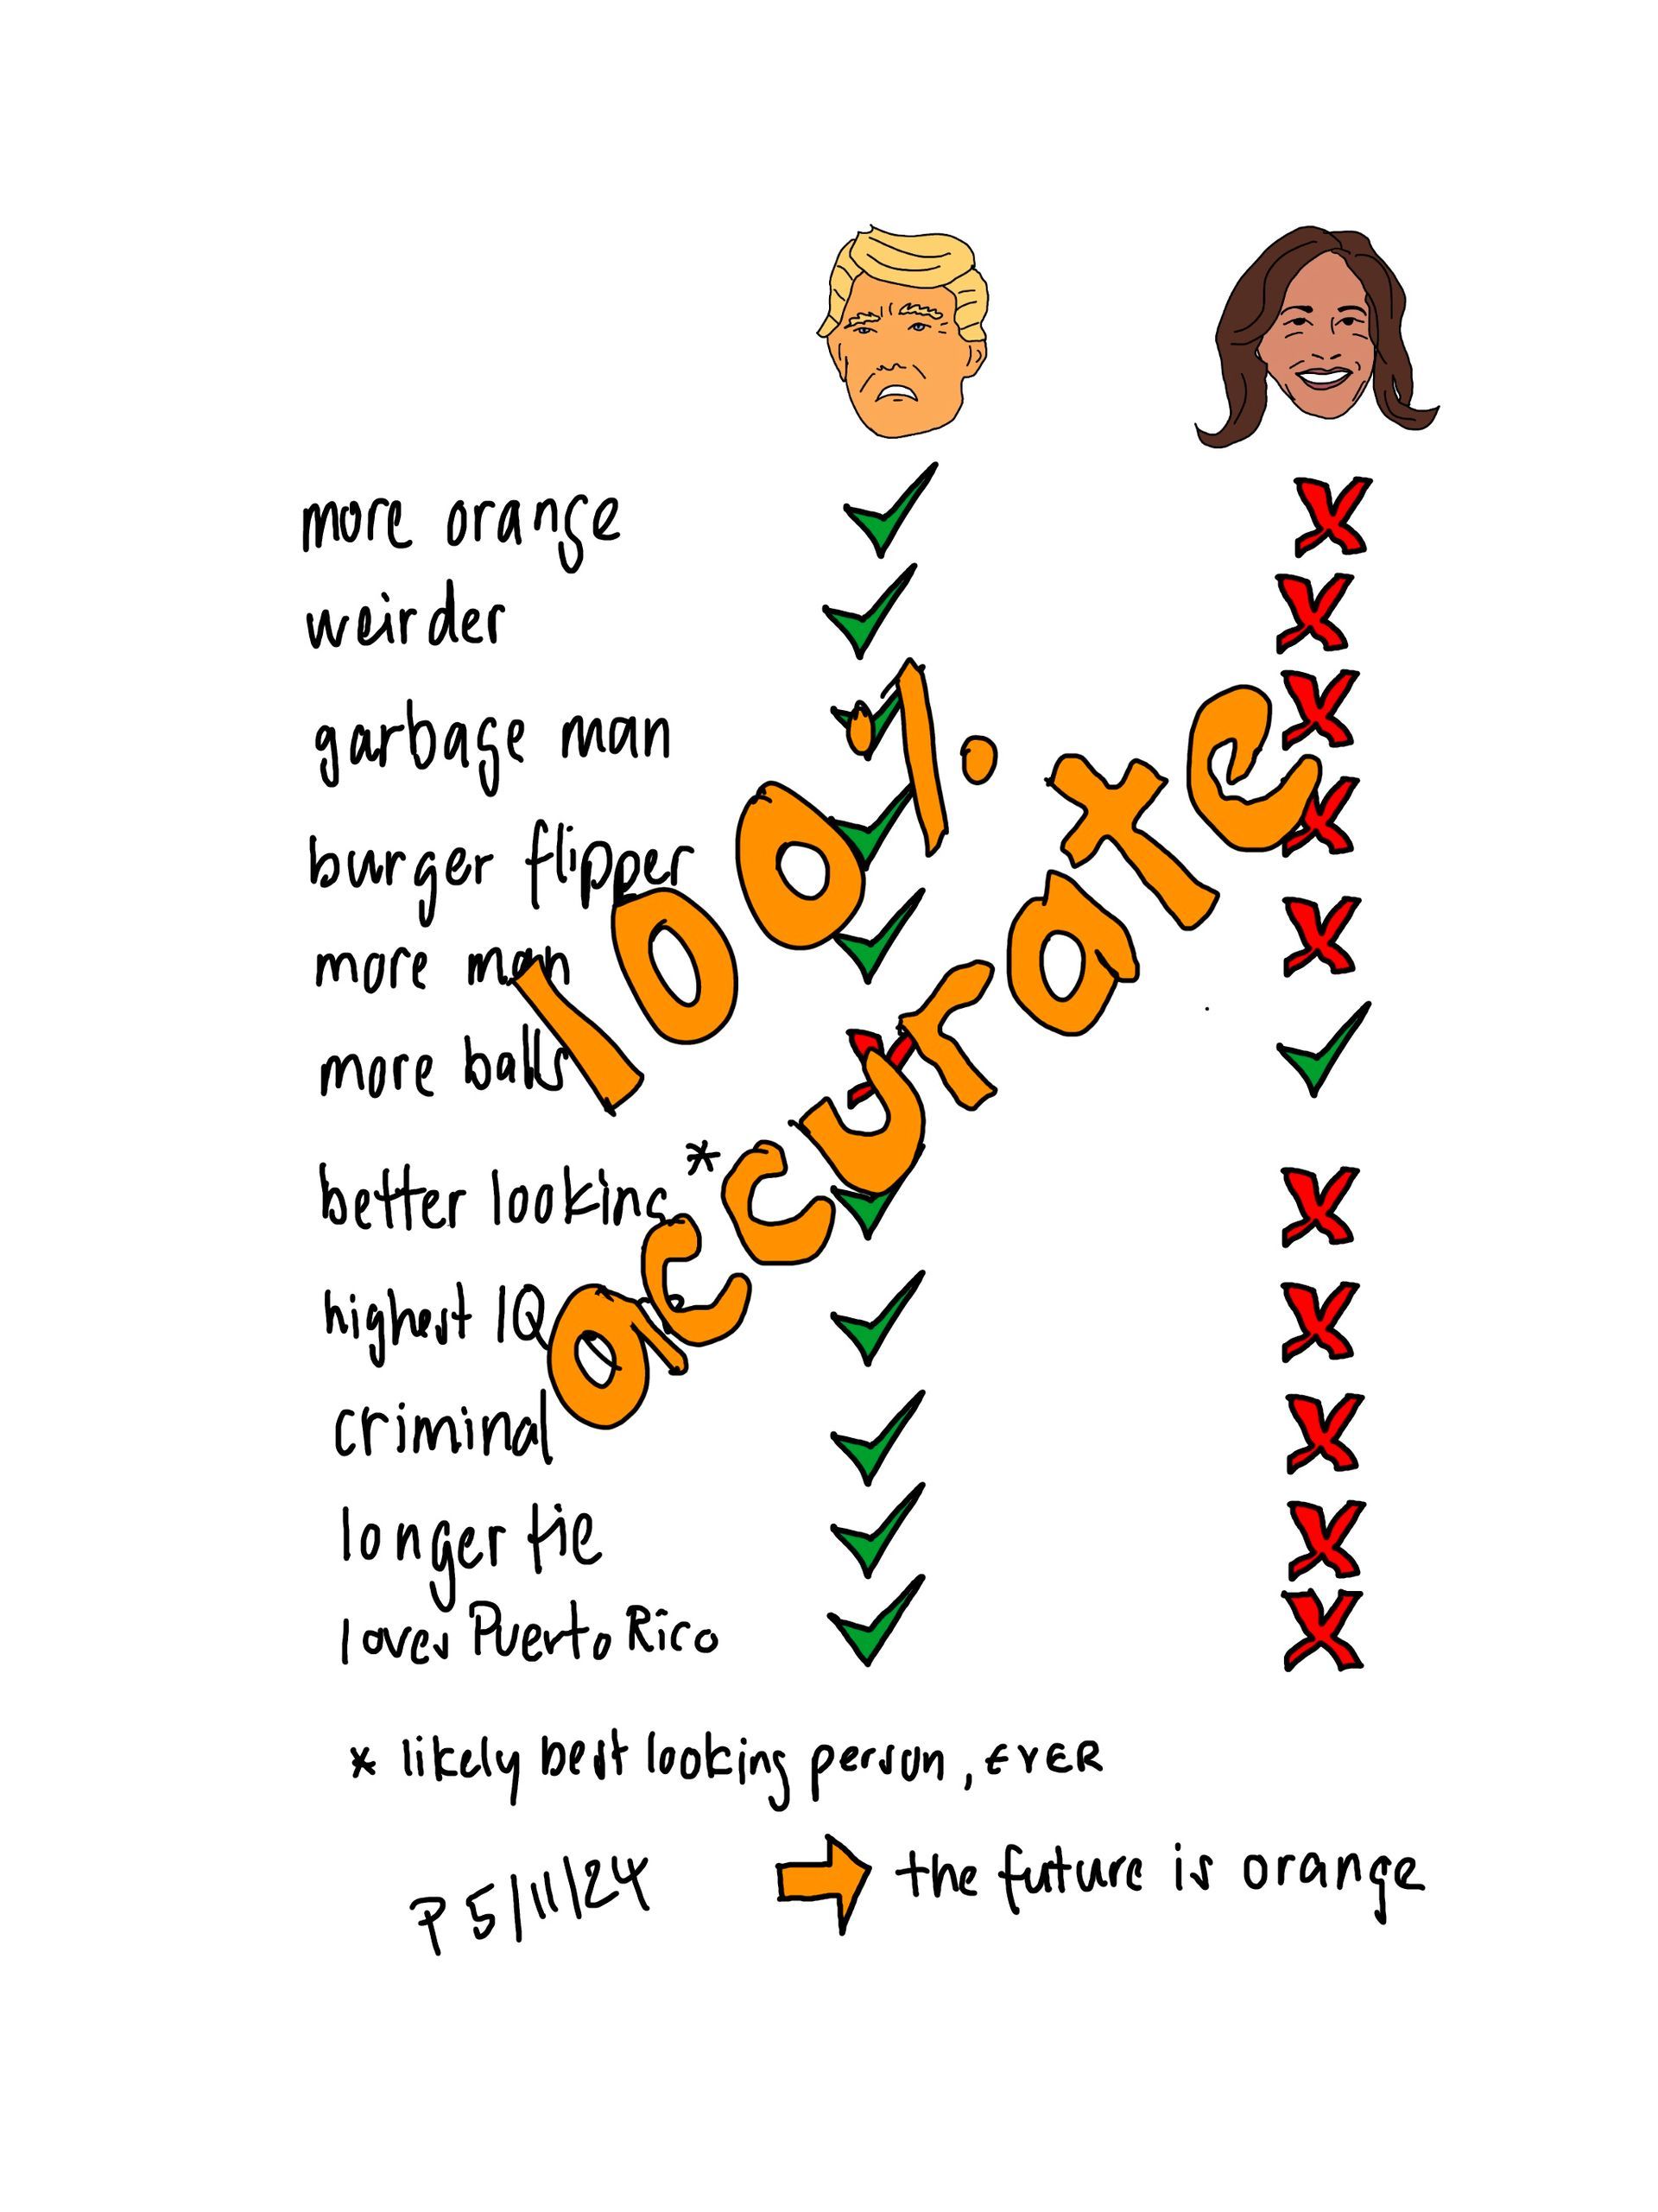 more orange
weirder
garbage man
burger flipper
more man
more balls
better looking*
highest IQ
criminal
longer tie
loves Puerto Rico
100%
accurate
* likely best looking person, EVER
the future is orange
P 5/11/24